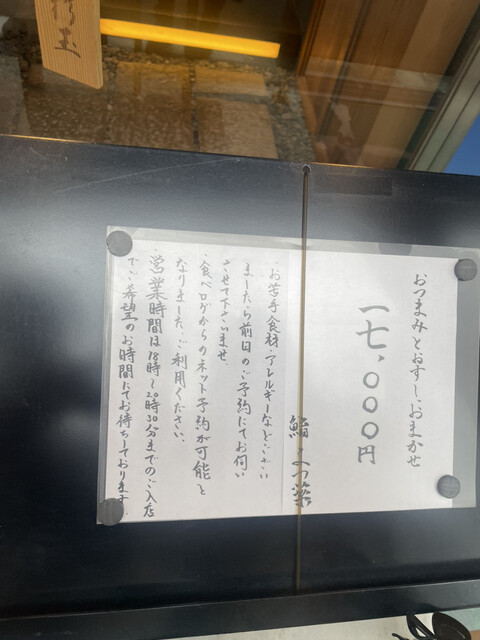 おつまみとおすし、おまかせ
一七、〇〇〇円
鮨 よつ葉
・お苦手食材・アレルギーなどござい
ましたら前日のご予約にてお伺い
させて下さいませ。
・食べログからのネット予約が可能と
なりました、ご利用ください。
・営業時間は18時〜20時30分までのご入店
でご希望のお時間にてお待ちしております。